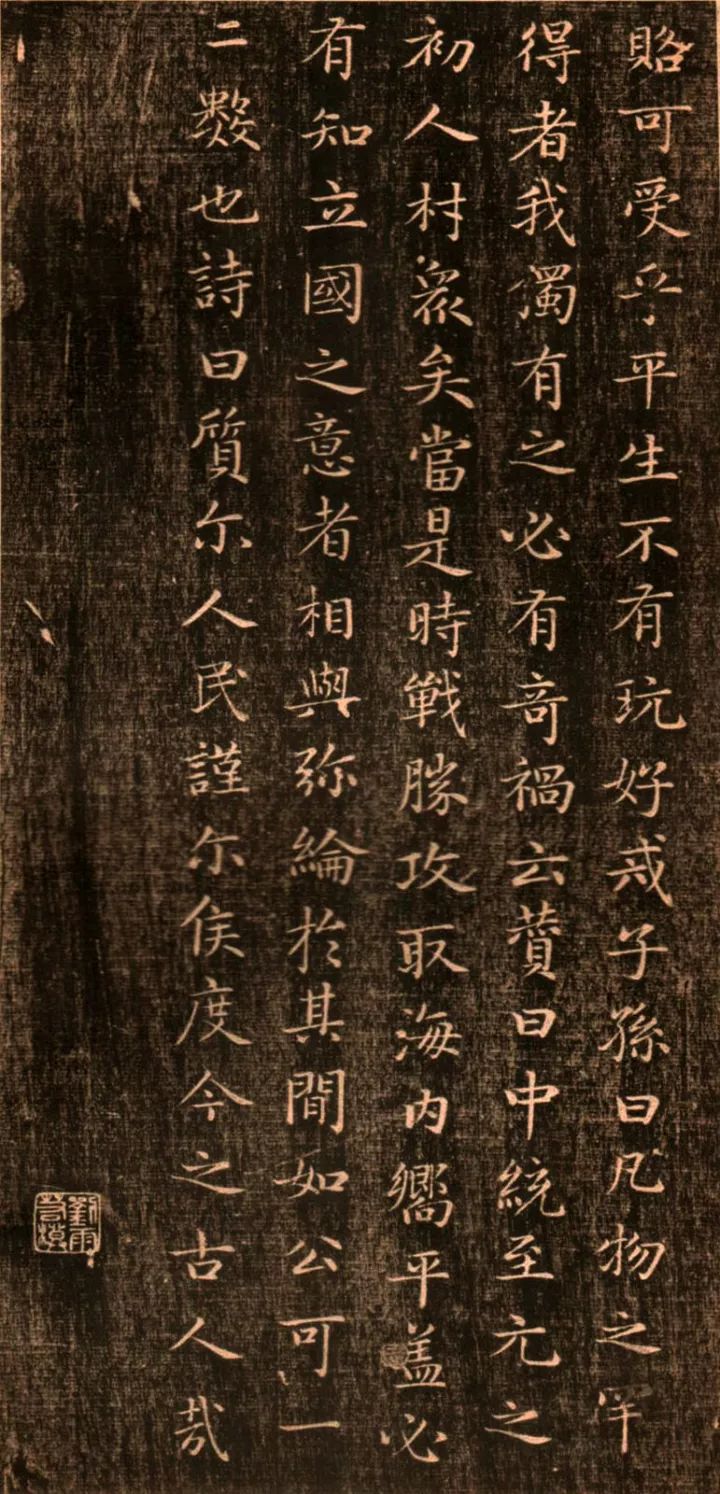 賂可受乎平生不有玩好戒子孫曰凡物之罕
得者我獨有之必有奇禍云贊曰中統至元之
初人材衆矣當是時戰勝攻取海内嚮平盖必
有知立國之意者相與弥綸於其間如公可一
二數也詩曰質尓人民謹尓侯度今之古人哉